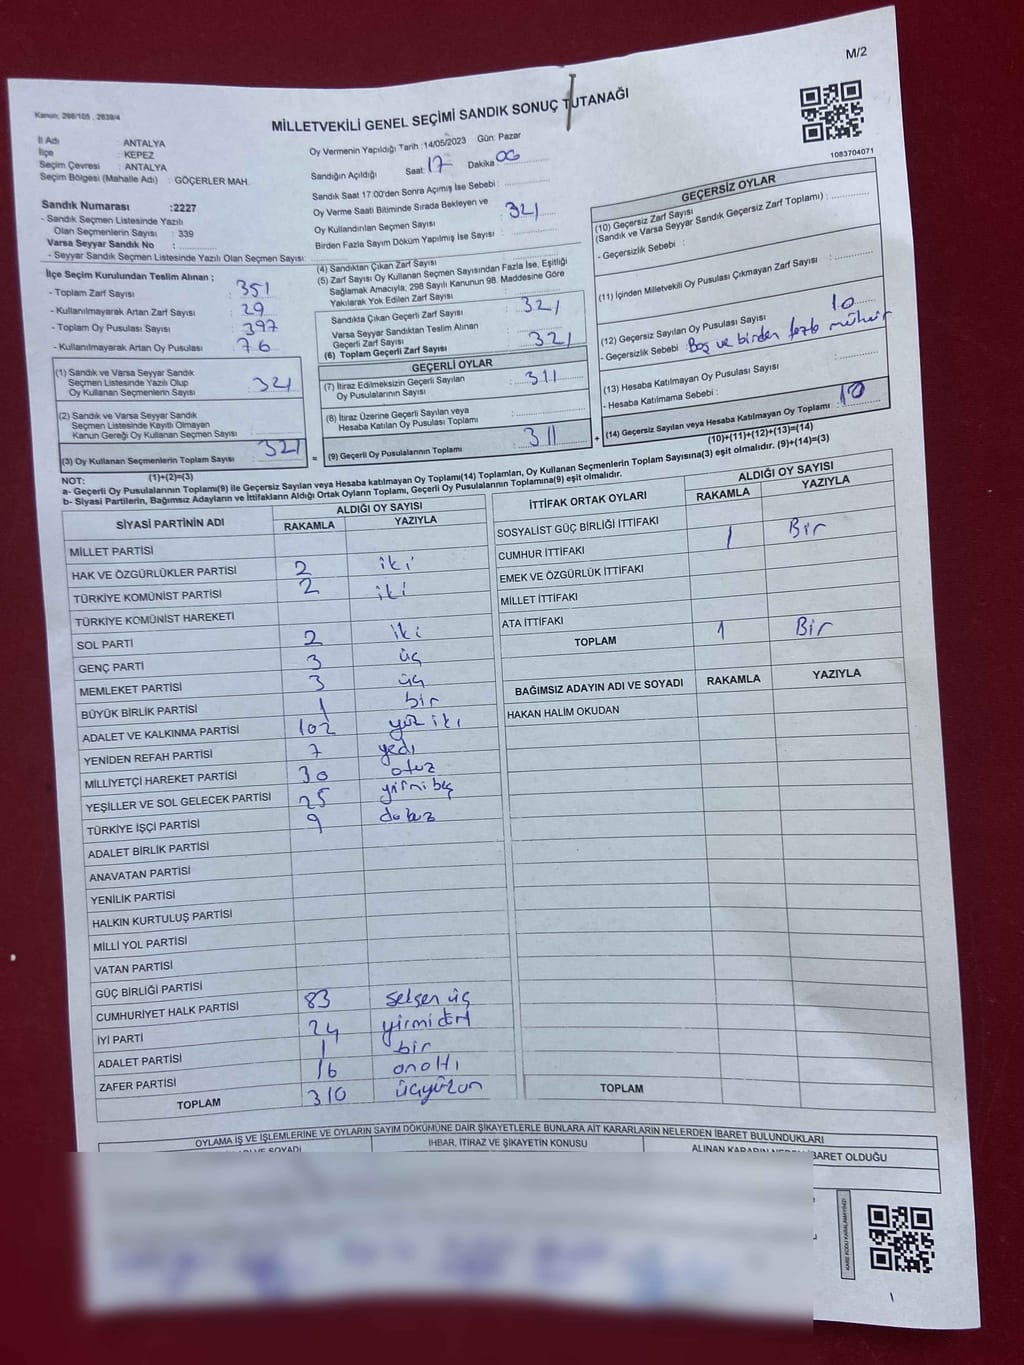 M/2
Kanun: 298/105 , 2839/4
MİLLETVEKİLİ GENEL SEÇİMİ SANDIK SONUÇ TUTANAĞI
1083704071
İl Adı : ANTALYA
İlçe : KEPEZ
Seçim Çevresi : ANTALYA
Seçim Bölgesi (Mahalle Adı) : GÖÇERLER MAH.
Oy Vermenin Yapıldığı Tarih :14/05/2023 Gün: Pazar
Sandığın Açıldığı Saat: 17 Dakika: 00
Sandık Saat 17.00'den Sonra Açmış İse Sebebi :
Oy Verme Saati Bitiminde Sırada Bekleyen ve
Oy Kullandırılan Seçmen Sayısı : 321
Birden Fazla Sayım Döküm Yapılmış İse Sayısı :
Sandık Numarası :2227
- Sandık Seçmen Listesinde Yazılı
Olan Seçmenlerin Sayısı : 339
Varsa Seyyar Sandık No :
- Seyyar Sandık Seçmen Listesinde Yazılı Olan Seçmen Sayısı:
İlçe Seçim Kurulundan Teslim Alınan ;
- Toplam Zarf Sayısı : 351
- Kullanılmayarak Artan Zarf Sayısı : 29
- Toplam Oy Pusulası Sayısı : 397
- Kullanılmayarak Artan Oy Pusulası : 76
(1) Sandık ve Varsa Seyyar Sandık
Seçmen Listesinde Yazılı Olup
Oy Kullanan Seçmenlerin Sayısı : 321
(2) Sandık ve Varsa Seyyar Sandık
Seçmen Listesinde Kayıtlı Olmayan
Kanun Gereği Oy Kullanan Seçmen Sayısı :
(3) Oy Kullanan Seçmenlerin Toplam Sayısı : 321
(1)+(2)=(3)
(4) Sandıktan Çıkan Zarf Sayısı
(5) Zarf Sayısı Oy Kullanan Seçmen Sayısından Fazla İse, Eşitliği
Sağlamak Amacıyla, 298 Sayılı Kanunun 98. Maddesine Göre
Yakılarak Yok Edilen Zarf Sayısı
Sandıkta Çıkan Geçerli Zarf Sayısı : 321
Varsa Seyyar Sandıktan Teslim Alınan
Geçerli Zarf Sayısı
(6) Toplam Geçerli Zarf Sayısı : 321
GEÇERLİ OYLAR
(7) İtiraz Edilmeksizin Geçerli Sayılan
Oy Pusulalarının Sayısı : 311
(8) İtiraz Üzerine Geçerli Sayılan veya
Hesaba Katılan Oy Pusulası Toplamı :
(9) Geçerli Oy Pusulalarının Toplamı : 311
GEÇERSİZ OYLAR
(10) Geçersiz Zarf Sayısı
(Sandık ve Varsa Seyyar Sandık Geçersiz Zarf Toplamı) :
- Geçersizlik Sebebi :
(11) İçinden Milletvekili Oy Pusulası Çıkmayan Zarf Sayısı :
(12) Geçersiz Sayılan Oy Pusulası Sayısı : 10
- Geçersizlik Sebebi Boş ve birden fazla mühür
(13) Hesaba Katılmayan Oy Pusulası Sayısı
- Hesaba Katılmama Sebebi :
(14) Geçersiz Sayılan veya Hesaba Katılmayan Oy Toplamı : 10
(10)+(11)+(12)+(13)=(14)
NOT:
a- Geçerli Oy Pusulalarının Toplamı(9) ile Geçersiz Sayılan veya Hesaba katılmayan Oy Toplamı(14) Toplamları, Oy Kullanan Seçmenlerin Toplam Sayısına(3) eşit olmalıdır. (9)+(14)=(3)
b- Siyasi Partilerin, Bağımsız Adayların ve İttifakların Aldığı Ortak Oyların Toplamı, Geçerli Oy Pusulalarının Toplamına(9) eşit olmalıdır.
SİYASİ PARTİNİN ADI ALDIĞI OY SAYISI
RAKAMLA YAZIYLA
MİLLET PARTİSİ
HAK VE ÖZGÜRLÜKLER PARTİSİ 2 iki
TÜRKİYE KOMÜNİST PARTİSİ 2 iki
TÜRKİYE KOMÜNİST HAREKETİ
SOL PARTİ 2 iki
GENÇ PARTİ 3 üç
MEMLEKET PARTİSİ 3 üç
BÜYÜK BİRLİK PARTİSİ 1 bir
ADALET VE KALKINMA PARTİSİ 102 yüz iki
YENİDEN REFAH PARTİSİ 7 yedi
MİLLİYETÇİ HAREKET PARTİSİ 30 otuz
YEŞİLLER VE SOL GELECEK PARTİSİ 25 yirmi beş
TÜRKİYE İŞÇİ PARTİSİ 9 dokuz
ADALET BİRLİK PARTİSİ
ANAVATAN PARTİSİ
YENİLİK PARTİSİ
HALKIN KURTULUŞ PARTİSİ
MİLLİ YOL PARTİSİ
VATAN PARTİSİ
GÜÇ BİRLİĞİ PARTİSİ
CUMHURİYET HALK PARTİSİ 83 seksen üç
İYİ PARTİ 24 yirmi dört
ADALET PARTİSİ 1 bir
ZAFER PARTİSİ 16 onaltı
TOPLAM 310 üçyüzon
İTTİFAK ORTAK OYLARI ALDIĞI OY SAYISI
RAKAMLA YAZIYLA
SOSYALİST GÜÇ BİRLİĞİ İTTİFAKI
CUMHUR İTTİFAKI 1 Bir
EMEK VE ÖZGÜRLÜK İTTİFAKI
MİLLET İTTİFAKI
ATA İTTİFAKI
TOPLAM 1 Bir
BAĞIMSIZ ADAYIN ADI VE SOYADI RAKAMLA YAZIYLA
HAKAN HALİM OKUDAN
TOPLAM
OYLAMA İŞ VE İŞLEMLERİNE VE OYLARIN SAYIM DÖKÜMÜNE DAİR ŞİKAYETLERLE BUNLARA AİT KARARLARIN NELERDEN İBARET BULUNDUKLARI
SOYADI İHBAR, İTİRAZ VE ŞİKAYETİN KONUSU ALINAN KARARIN NEDEN İBARET OLDUĞU
KARE KODU KARALAMAYINIZ!
1